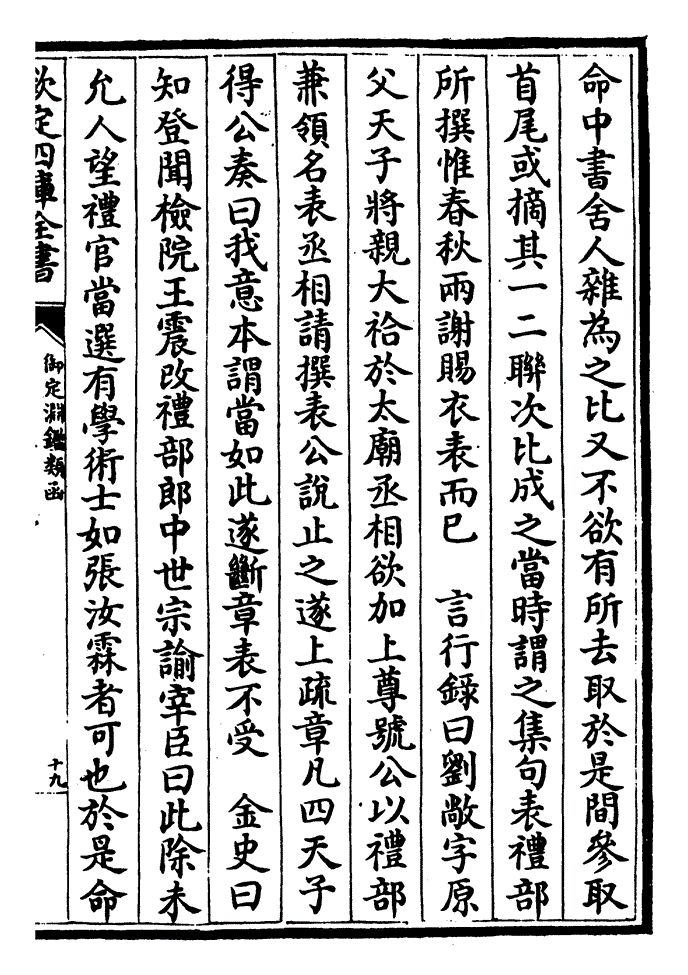 命中書舍人雜為之比又不欲有所去取於是間參取
首尾或摘其一二聯次比成之當時謂之集句表禮部
所撰惟春秋兩謝賜衣表而已　言行錄曰劉敞字原
父天子將親大祫於太廟丞相欲加上尊號公以禮部
兼領名表丞相請撰表公說止之遂上疏章凡四天子
得公奏曰我意本謂當如此遂斷章表不受　金史曰
知登聞檢院王震改禮部郎中世宗諭宰臣曰此除未
允人望禮官當選有學術士如張汝霖者可也於是命
欽定四庫全書
御定淵鑑類函
十九